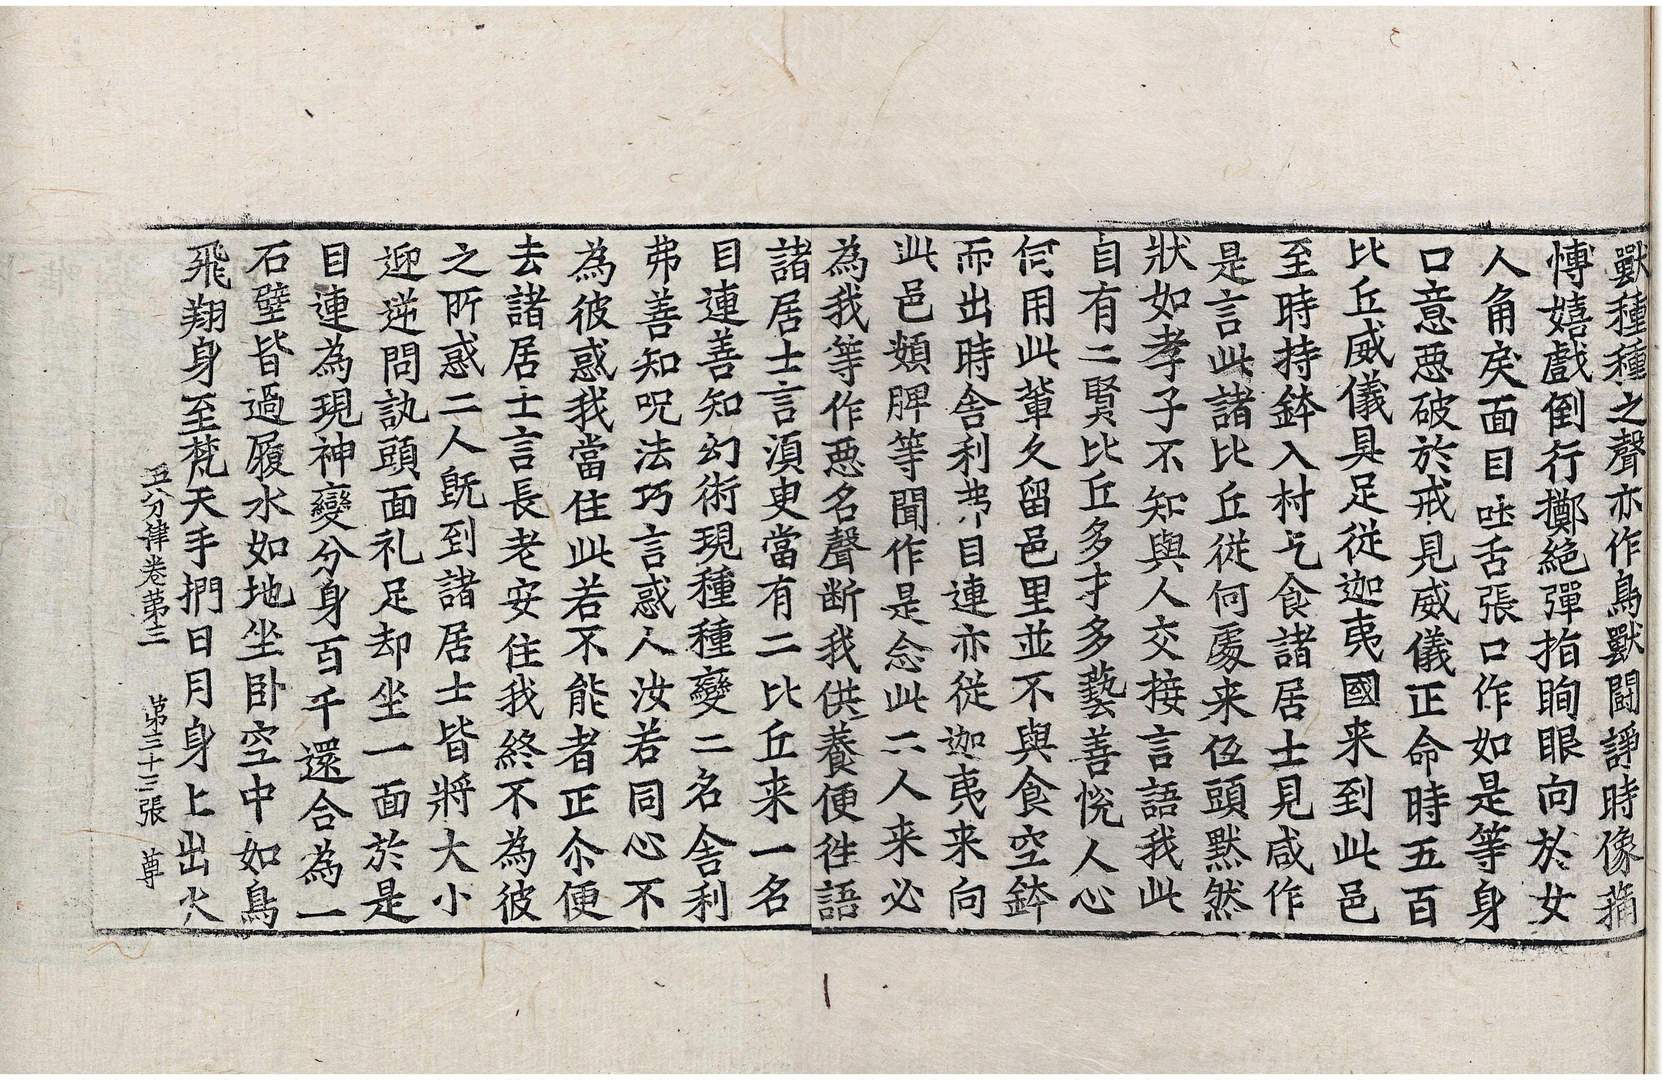 獸種種之聲亦作鳥獸鬪諍時像蒱
博嬉戲倒行擲絕彈指眴眼向於女
人角戾面目吐舌張口作如是等身
口意惡破於戒見威儀正命時五百
比丘威儀具足從迦夷國来到此邑
至時持鉢入村乞食諸居士見咸作
是言此諸比丘從何處来伍頭默然
狀如孝子不知與人交接言語我此
自有二賢比丘多才多藝善恱人心
何用此輩久留邑里並不與食空鉢
而出時舍利弗目連亦從迦夷来向
此邑頞脾等聞作是念此二人来必
為我等作惡名聲斷我供養便往語
諸居士言湏臾當有二比丘来一名
目連善知幻術現種種變二名舍利
弗善知呪法巧言惑人汝若同心不
為彼惑我當住此若不能者正尒便
去諸居士言長老安住我終不為彼
之所惑二人旣到諸居士皆將大小
迎逆問訊頭面礼足却坐一面於是
目連為現神變分身百千還合為一
石壁皆過履水如地坐卧空中如鳥
飛翔身至梵天手捫日月身上出火
五分律卷苐三 苐三十三張 尊